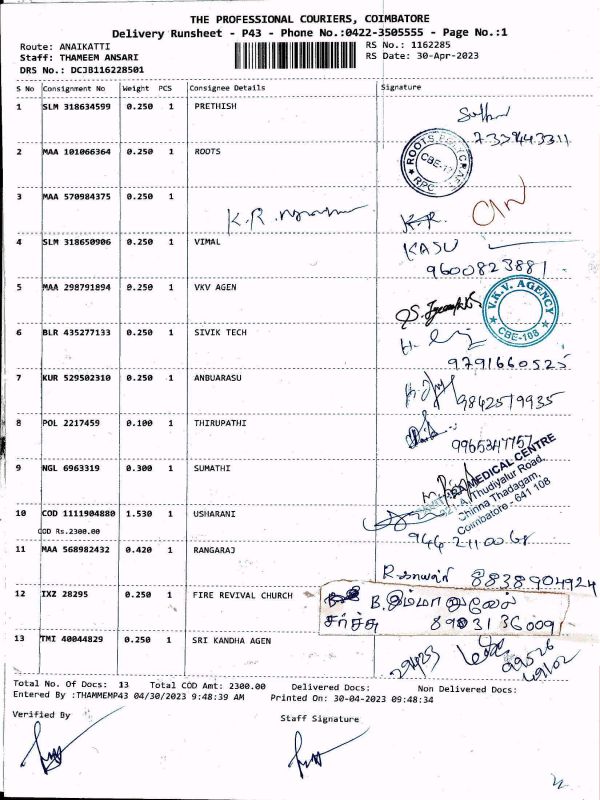 THE PROFESSIONAL COURIERS, COIMBATORE
Delivery Runsheet - P43 - Phone No.:0422-3505555 - Page No.:1
Route: ANAIKATTI RS No.: 1162285
Staff: THAMEEM ANSARI RS Date: 30-Apr-2023
DRS No.: DCJB116228501
S No Consignment No Weight PCS Consignee Details Signature
1 SLM 318634599 0.250 1 PRETHISH
2 MAA 101066364 0.250 1 ROOTS
ROOTS POLYCRAFT
CBE-17
RPC
3 MAA 570984375 0.250 1
K.R.
K.R.
4 SLM 318650906 0.250 1 VIMAL KASU
9600823881
5 MAA 298791894 0.250 1 VKV AGEN
V.K.V. AGENCY
CBE-108
6 BLR 435277133 0.250 1 SIVIK TECH
9791660525
7 KUR 529502310 0.250 1 ANBUARASU
9842519935
8 POL 2217459 0.100 1 THIRUPATHI
9965347757
9 NGL 6963319 0.300 1 SUMATHI
MEDICAL CENTRE
Thudiyalur Road,
Chinna Thadagam,
Coimbatore - 641 108
10 COD 1111904880 1.530 1 USHARANI
COD Rs.2300.00
11 MAA 568982432 0.420 1 RANGARAJ
8838904924
12 IXZ 28295 0.250 1 FIRE REVIVAL CHURCH B. இம்மானுவேல்
சர்ச்சு 8903136009
13 TMI 40044829 0.250 1 SRI KANDHA AGEN
Total No. Of Docs: 13 Total COD Amt: 2300.00 Delivered Docs: Non Delivered Docs:
Entered By :THAMMEMP43 04/30/2023 9:48:39 AM Printed On: 30-04-2023 09:48:34
Verified By Staff Signature